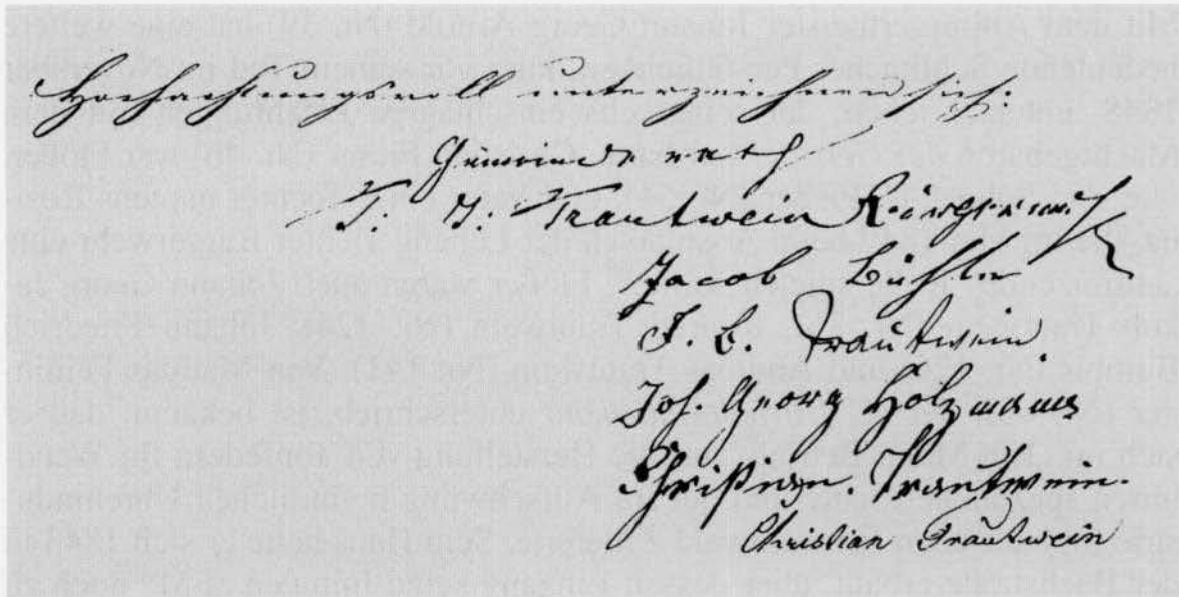 Hochachtungsvoll unterzeichnen sich:
Gemeinderath
T. J. Trautwein Bürgermstr
Jacob Bühler
J. B. Trautwein.
Joh. Georg Holzmann
Christian. Trautwein.
Christian Trautwein